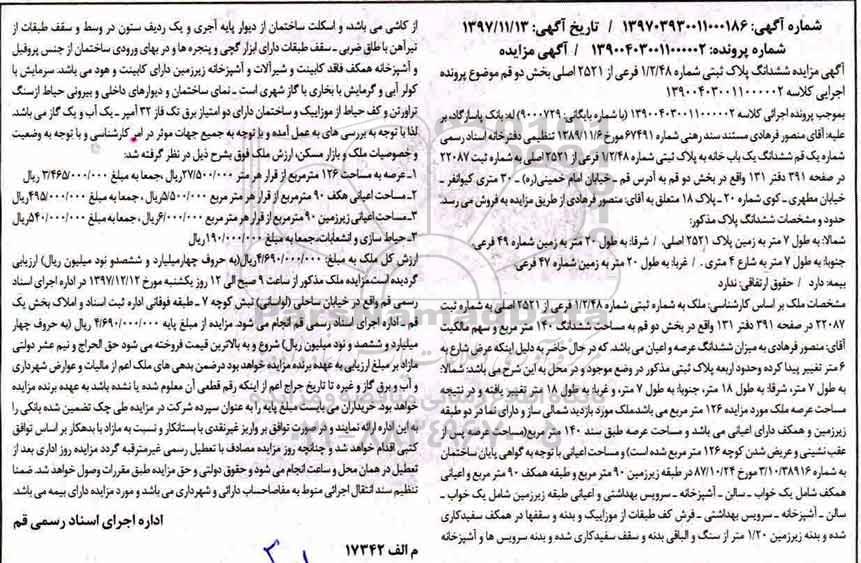 شماره آگهی: ۱۳۹۷۰۳۹۳۰۰۱۱۰۰۰۱۸۶ / تاریخ آگهی: ۱۳۹۷/۱۱/۱۳
شماره پرونده: ۱۳۹۰۰۴۰۳۰۰۱۱۰۰۰۰۰۲ / آگهی مزایده
آگهی مزایده ششدانگ پلاک ثبتی شماره ۱/۲/۴۸ فرعی از ۲۵۲۱ اصلی بخش دو قم موضوع پرونده
اجرایی کلاسه ۱۳۹۰۰۴۰۳۰۰۱۱۰۰۰۰۰۲
بموجب پرونده اجرائی کلاسه ۱۳۹۰۰۴۰۳۰۰۱۱۰۰۰۰۰۲ (با شماره بایگانی: ۹۰۰۰۷۲۹) له: بانک پاسارگاد، بر
علیه: آقای منصور فرهادی مستند سند رهنی شماره ۶۷۴۹۱ مورخ ۱۳۸۹/۱۱/۶ تنظیمی دفترخانه اسناد رسمی
شماره یک قم ششدانگ یک باب خانه به پلاک ثبتی شماره ۱/۲/۴۸ فرعی از ۲۵۲۱ اصلی به شماره ثبت ۲۲۰۸۷
در صفحه ۳۹۱ دفتر ۱۳۱ واقع در بخش دو قم به آدرس قم ـ خیابان امام خمینی(ره) ـ ۳۰ متری کیوانفر ـ
خیابان مطهری ـ کوی شماره ۲۰ ـ پلاک ۱۸ متعلق به آقای: منصور فرهادی از طریق مزایده به فروش می رسد.
حدود و مشخصات ششدانگ پلاک مذکور:
شمالا: به طول ۷ متر به زمین پلاک ۲۵۲۱ اصلی. / شرقا: به طول ۲۰ متر به زمین شماره ۴۹ فرعی.
جنوبا: به طول ۷ متر به شارع ۴ متری. / غربا: به طول ۲۰ متر به زمین شماره ۴۷ فرعی.
بیمه: دارد / حقوق ارتفاقی: ندارد
مشخصات ملک بر اساس کارشناسی: ملک به شماره ثبتی شماره ۱/۲/۴۸ فرعی از ۲۵۲۱ اصلی به شماره ثبت
۲۲۰۸۷ در صفحه ۳۹۱ دفتر ۱۳۱ واقع در بخش دو قم به مساحت ششدانگ ۱۴۰ متر مربع و سهم مالکیت
آقای: منصور فرهادی به میزان ششدانگ عرصه و اعیان می باشد. که در حال حاضر به دلیل اینکه عرض شارع به
۶ متر تغییر پیدا کرده وحدود اربعه پلاک ثبتی مذکور در وضع موجود و در محل به این شرح می باشد: شمالا:
به طول ۷ متر، شرقا: به طول ۱۸ متر، جنوبا: به طول ۷ متر، و غربا: به طول ۱۸ متر تغییر یافته و در نتیجه
مساحت عرصه ملک مورد مزایده ۱۲۶ متر مربع می باشد ملک مورد بازدید شمالی ساز و دارای نما در دو طبقه
زیرزمین و همکف دارای اعیانی می باشد و مساحت عرصه طبق سند ۱۴۰ متر مربع(مساحت عرصه پس از
عقب نشینی و عریض شدن کوچه ۱۲۶ متر مربع شده است) و مساحت اعیانی با توجه به گواهی پایان ساختمان
به شماره ۳/۱۰/۳۸۹۱۶ مورخ ۸۷/۱۰/۲۴ در طبقه زیرزمین ۹۰ متر مربع و طبقه همکف ۹۰ متر مربع و اعیانی
همکف شامل یک خواب ـ سالن ـ آشپزخانه ـ سرویس بهداشتی و اعیانی طبقه زیرزمین شامل یک خواب ـ
سالن ـ آشپزخانه ـ سرویس بهداشتی ـ فرش کف طبقات از موزاییک و بدنه و سقفها در همکف سفیدکاری
شده و بدنه زیرزمین ۱/۲۰ متر از سنگ و الباقی بدنه و سقف سفیدکاری شده و بدنه سرویس ها و آشپزخانه
از کاشی می باشد، و اسکلت ساختمان از دیوار پایه آجری و یک ردیف ستون در وسط و سقف طبقات از
تیرآهن با طاق ضربی ـ سقف طبقات دارای ابزار گچی و پنجره ها و در بهای ورودی ساختمان از جنس پروفیل
و آشپزخانه همکف فاقد کابینت و شیرآلات و آشپزخانه زیرزمین دارای کابینت و هود می باشد. سرمایش با
کولر آبی و گرمایش با بخاری یا گاز شهری است ـ نمای ساختمان و دیوارهای داخلی و بیرونی حیاط از سنگ
تراورتن و کف حیاط از موزاییک و ساختمان دارای دو امتیاز برق تک فاز ۳۲ آمپر ـ یک آب و یک گاز می باشد.
لذا با توجه به بررسی های به عمل آمده و با توجه به جمیع جهات موثر در امر کارشناسی و با توجه به وضعیت
و خصوصیات ملک و بازار مسکن، ارزش ملک فوق بشرح ذیل در نظر گرفته شد:
۱ـ عرصه به مساحت ۱۲۶ مترمربع از قرار هر متر ۲۷/۵۰۰/۰۰۰ریال، جمعا به مبلغ ۳/۴۶۵/۰۰۰/۰۰۰ ریال
۲ـ مساحت اعیانی همکف ۹۰ مترمربع از قرار هر متر مربع ۵/۵۰۰/۰۰۰ریال ، جمعا به مبلغ ۴۹۵/۰۰۰/۰۰۰ریال
۳ـ مساحت اعیانی زیرزمین ۹۰ مترمربع از قرار هر متر مربع ۶/۰۰۰/۰۰۰ریال ، جمعا به مبلغ ۵۴۰/۰۰۰/۰۰۰ریال
۴ـ حیاط سازی و انشعابات، جمعا به مبلغ ۱۹۰/۰۰۰/۰۰۰ریال
ارزش کل ملک به مبلغ: ۴/۶۹۰/۰۰۰/۰۰۰ریال(به حروف چهارمیلیارد و ششصدو نود میلیون ریال) ارزیابی
گردیده است مزایده ملک مذکور از ساعت ۹ صبح الی ۱۲ روز یکشنبه مورخ ۱۳۹۷/۱۲/۱۲ در اداره اجرای اسناد
رسمی قم واقع در خیابان ساحلی (لواسانی) نبش کوچه ۷ ـ طبقه فوقانی اداره ثبت اسناد و املاک بخش یک
قم ـ اداره اجرای اسناد رسمی قم انجام می شود. مزایده از مبلغ پایه ۴/۶۹۰/۰۰۰/۰۰۰ ریال (به حروف چهار
میلیارد و ششصد و نود میلیون ریال) شروع و به بالاترین قیمت فروخته می شود حق الحراج و نیم عشر دولتی
مازاد بر مبلغ ارزیابی به عهده برنده مزایده خواهد بود درضمن بدهی های ملک اعم از مالیات و عوارض شهرداری
و آب و برق گاز و غیره تا تاریخ حراج اعم از اینکه رقم قطعی آن معلوم شده یا نشده باشد به عهده برنده مزایده
خواهد بود. خریداران می بایست مبلغ پایه را به عنوان سپرده شرکت در مزایده طی چک تضمین شده بانکی را
به این اداره ارائه نمایند و در صورت توافق بر واریز غیرنقدی با بستانکار و نسبت به مازاد با بدهکار بر اساس توافق
کتبی اقدام خواهد شد و چنانچه روز مزایده مصادف با تعطیل رسمی غیرمترقبه گردد مزایده روز اداری بعد از
تعطیل در همان محل و ساعت انجام می شود و حقوق دولتی و حق مزایده طبق مقررات وصول خواهد شد. ضمنا
تنظیم سند انتقال اجرائی منوط به مفاصاحساب دارائی و شهرداری می باشد و مورد مزایده دارای بیمه می باشد.
اداره اجرای اسناد رسمی قم
م الف ۱۷۳۴۲
ParsNamadData